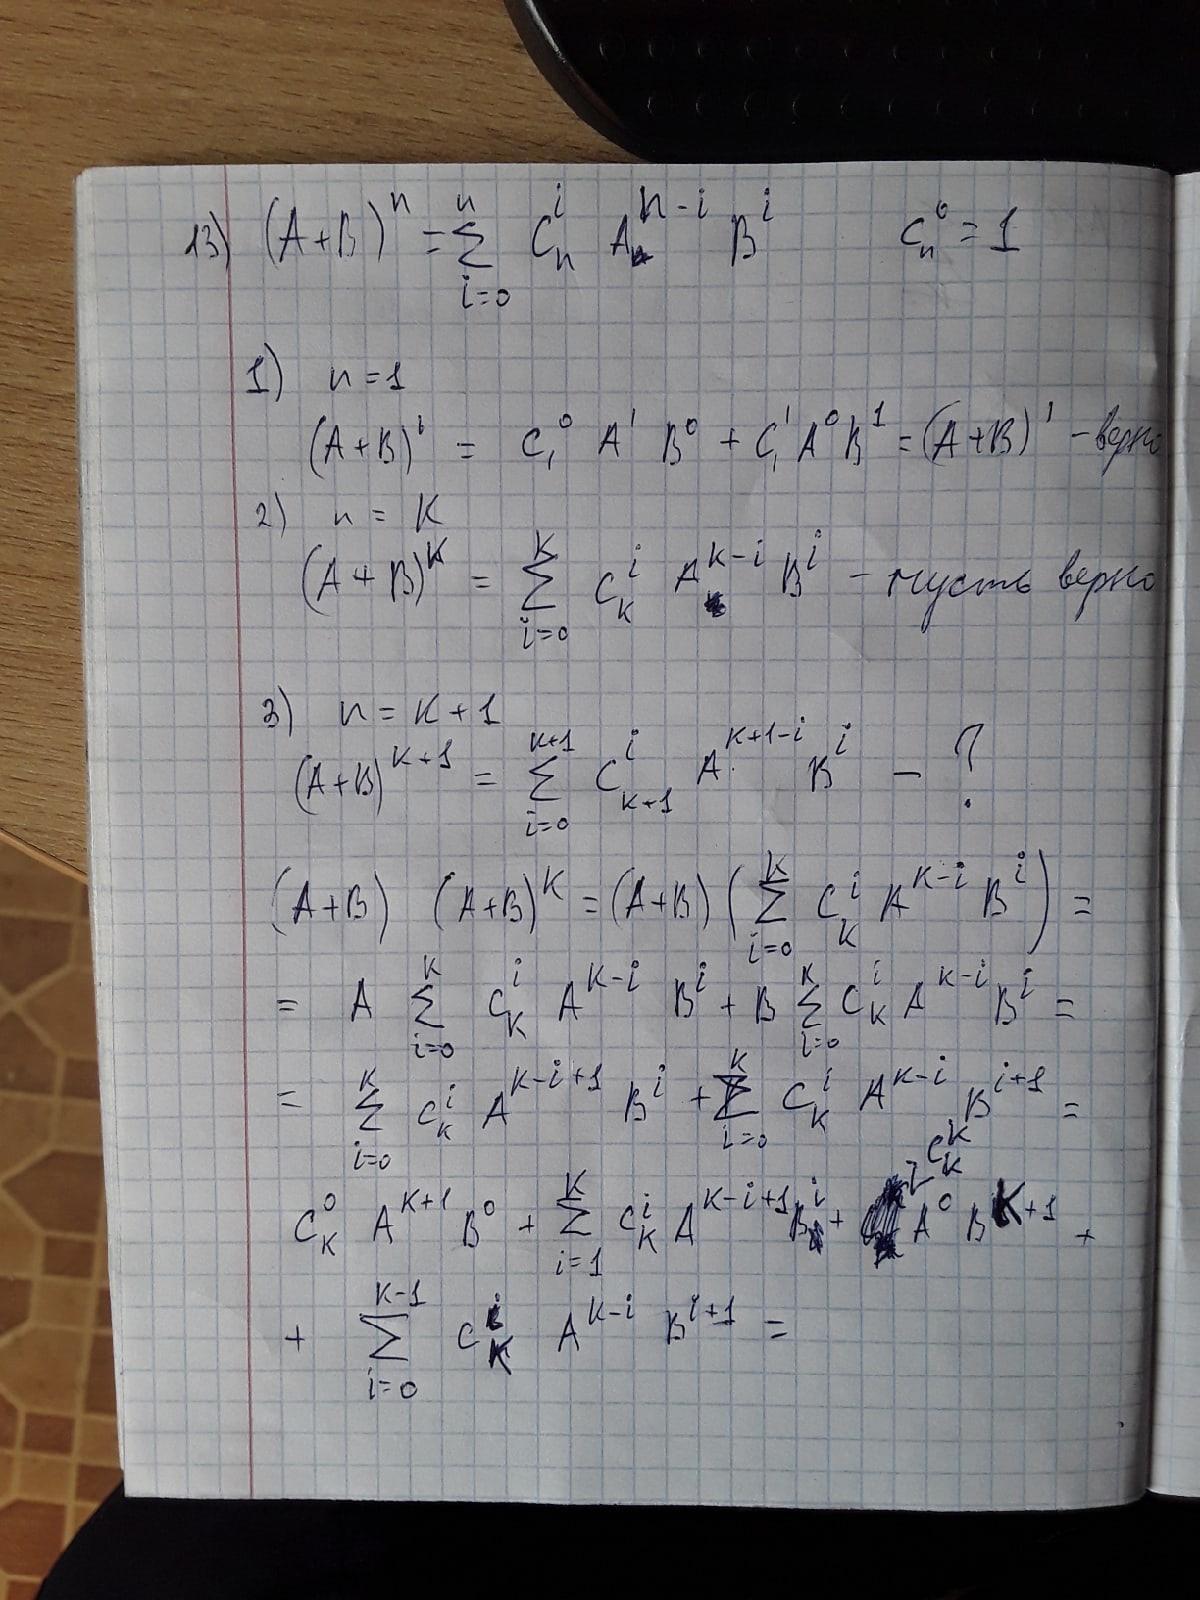 13) (A+B)^n = ∑_{i=0}^{n} C_n^i A^{n-i} B^i C_n^0 = 1
1) n = 1
(A+B)^1 = C_1^0 A^1 B^0 + C_1^1 A^0 B^1 = (A+B)^1 - верно
2) n = K
(A+B)^K = ∑_{i=0}^{K} C_K^i A^{K-i} B^i - пусть верно
3) n = K+1
(A+B)^{K+1} = ∑_{i=0}^{K+1} C_{K+1}^i A^{K+1-i} B^i - ?
(A+B) (A+B)^K = (A+B) (∑_{i=0}^{K} C_K^i A^{K-i} B^i) =
= A ∑_{i=0}^{K} C_K^i A^{K-i} B^i + B ∑_{i=0}^{K} C_K^i A^{K-i} B^i =
= ∑_{i=0}^{K} C_K^i A^{K-i+1} B^i + ∑_{i=0}^{K} C_K^i A^{K-i} B^{i+1} =
C_K^0 A^{K+1} B^0 + ∑_{i=1}^{K} C_K^i A^{K-i+1} B^i + C_K^K A^0 B^{K+1} +
+ ∑_{i=0}^{K-1} C_K^i A^{K-i} B^{i+1} =